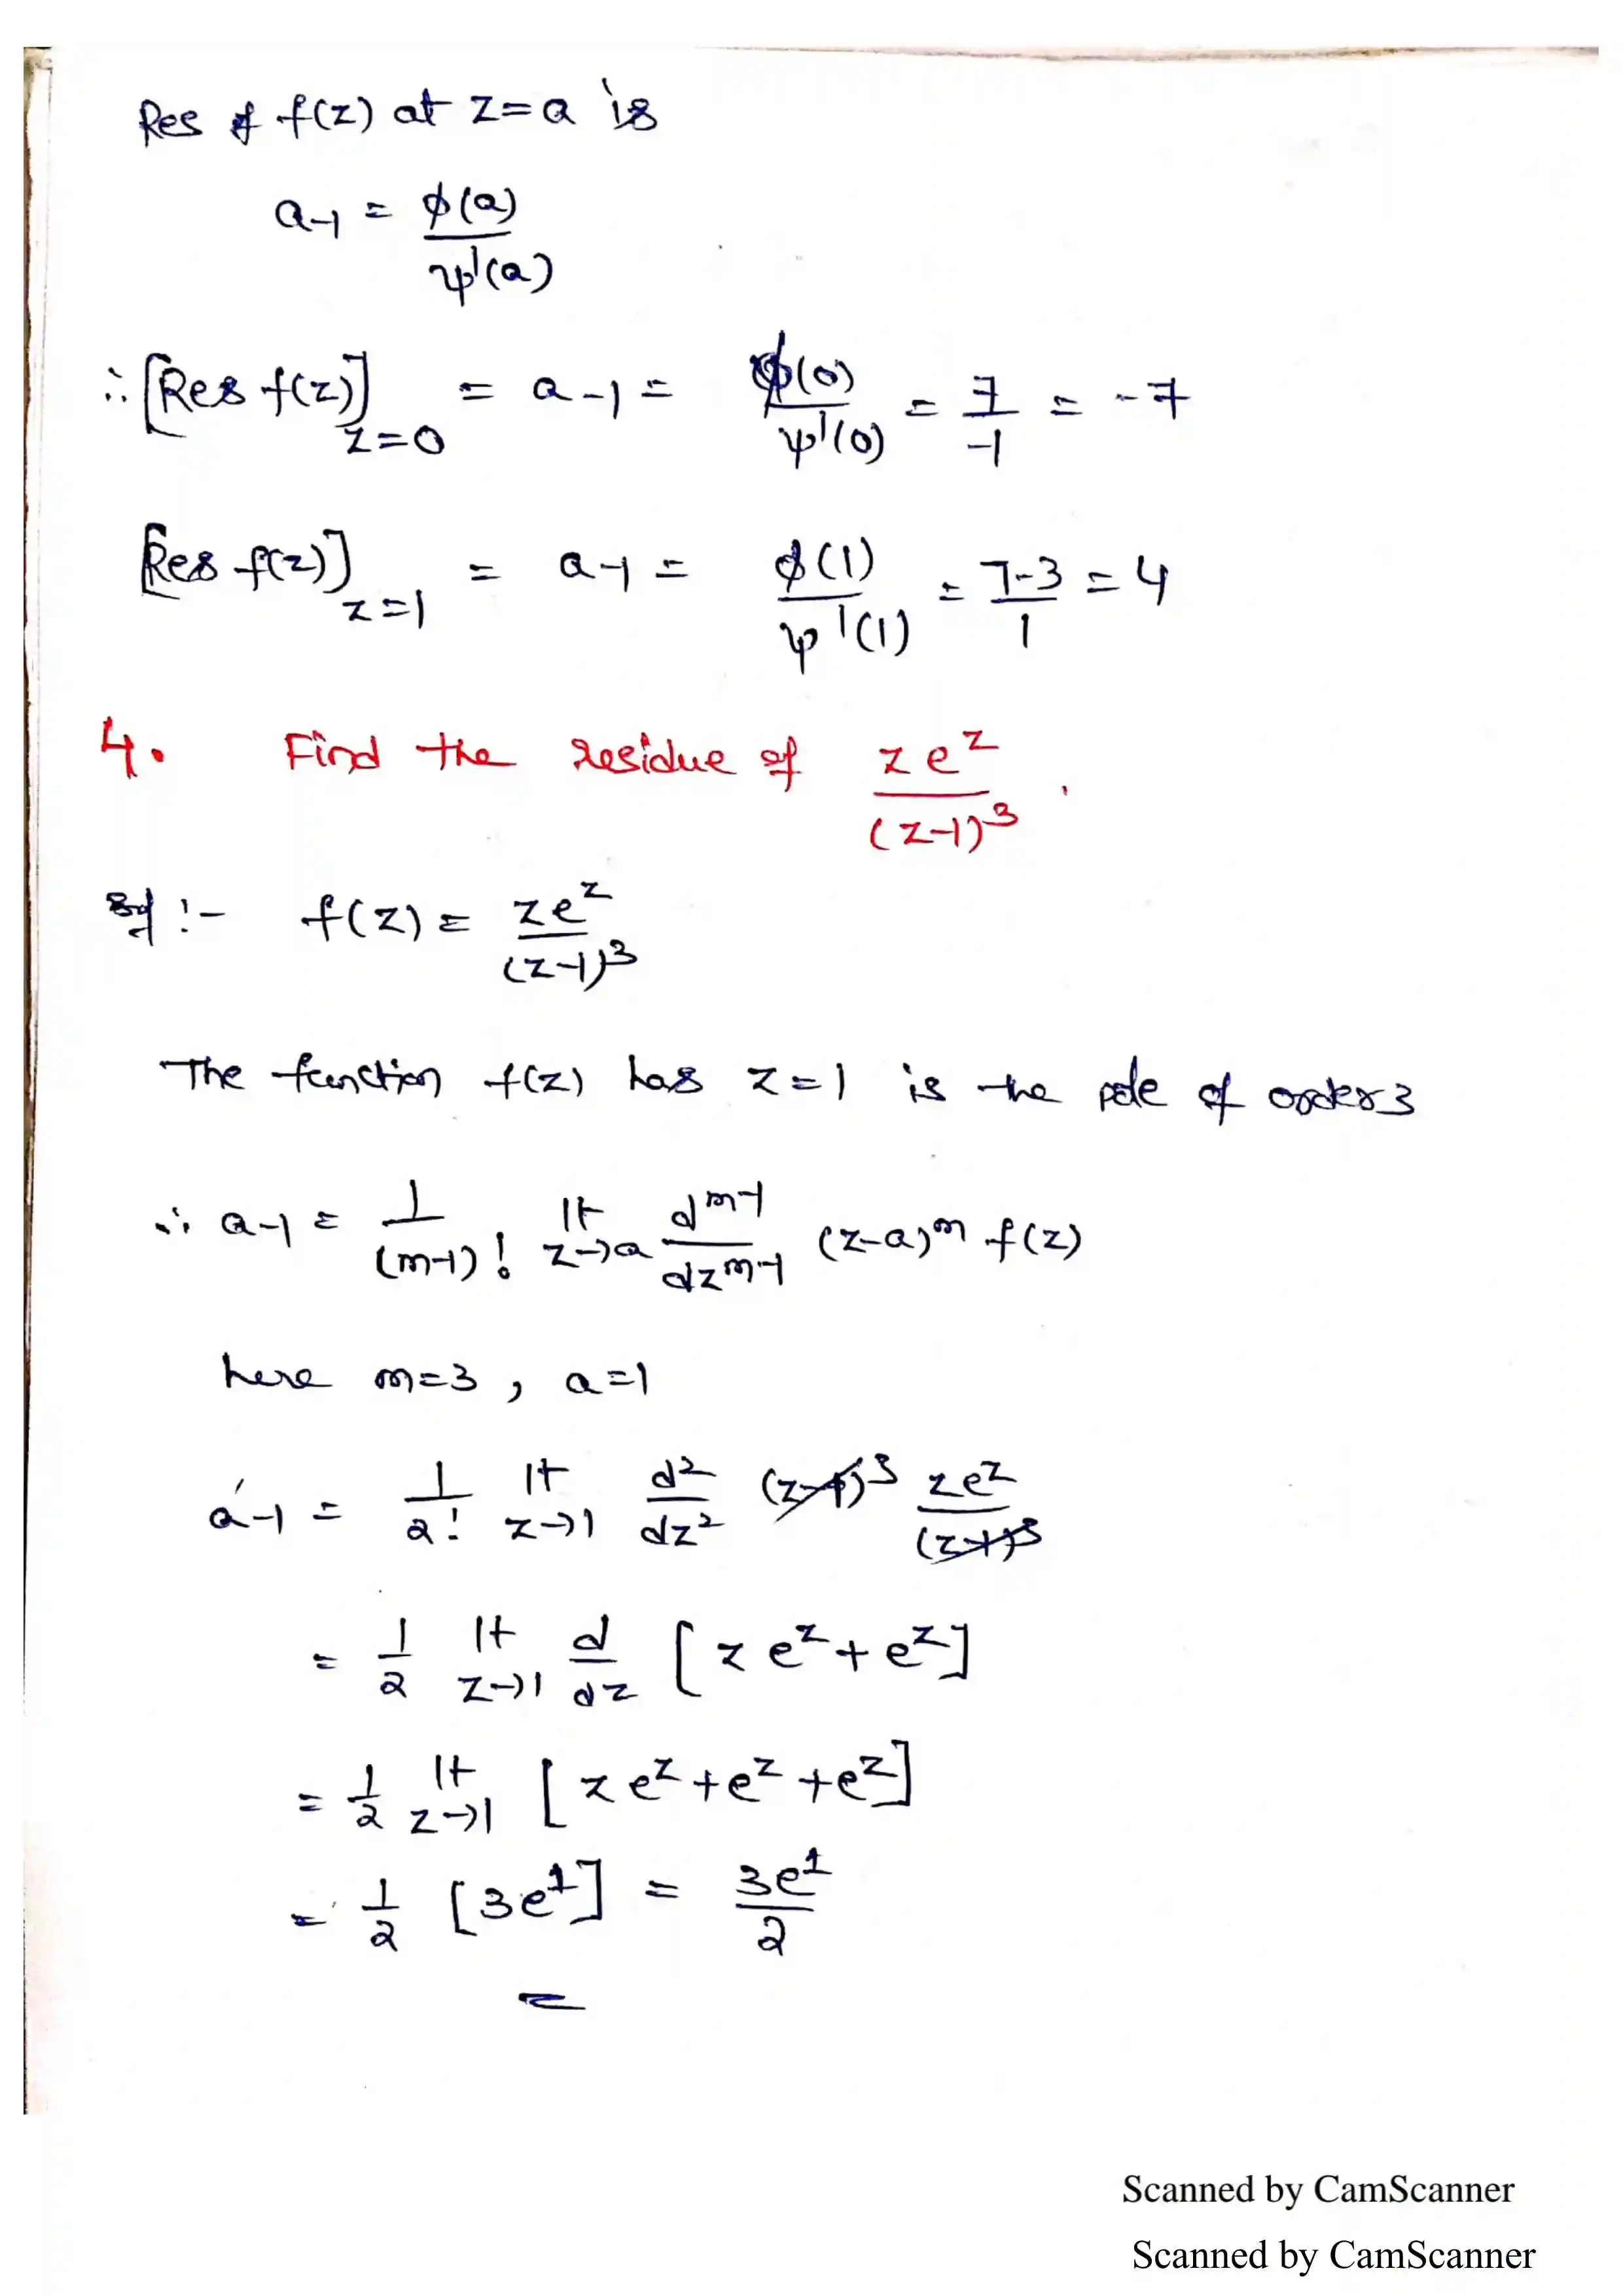 Res of f(z) at z=a is
a-1 = φ(a)/ψ'(a)
∴ [Res f(z)] z=0 = a-1 = φ(0)/ψ'(0) = 7/-1 = -7
[Res f(z)] z=1 = a-1 = φ(1)/ψ'(1) = 7-3/1 = 4
4. Find the residue of z e^z/(z-1)^3.
Sol :- f(z) = z e^z/(z-1)^3
The function f(z) has z=1 is the pole of order 3
∴ a-1 = 1/(m-1)! lt z→a d^m-1/dz^m-1 (z-a)^m f(z)
here m=3, a=1
a-1 = 1/2! lt z→1 d^2/dz^2 (z-1)^3 z e^z/(z-1)^3
= 1/2 lt z→1 d/dz [z e^z + e^z]
= 1/2 lt z→1 [z e^z + e^z + e^z]
= 1/2 [3e^1] = 3e^1/2
Scanned by CamScanner
Scanned by CamScanner